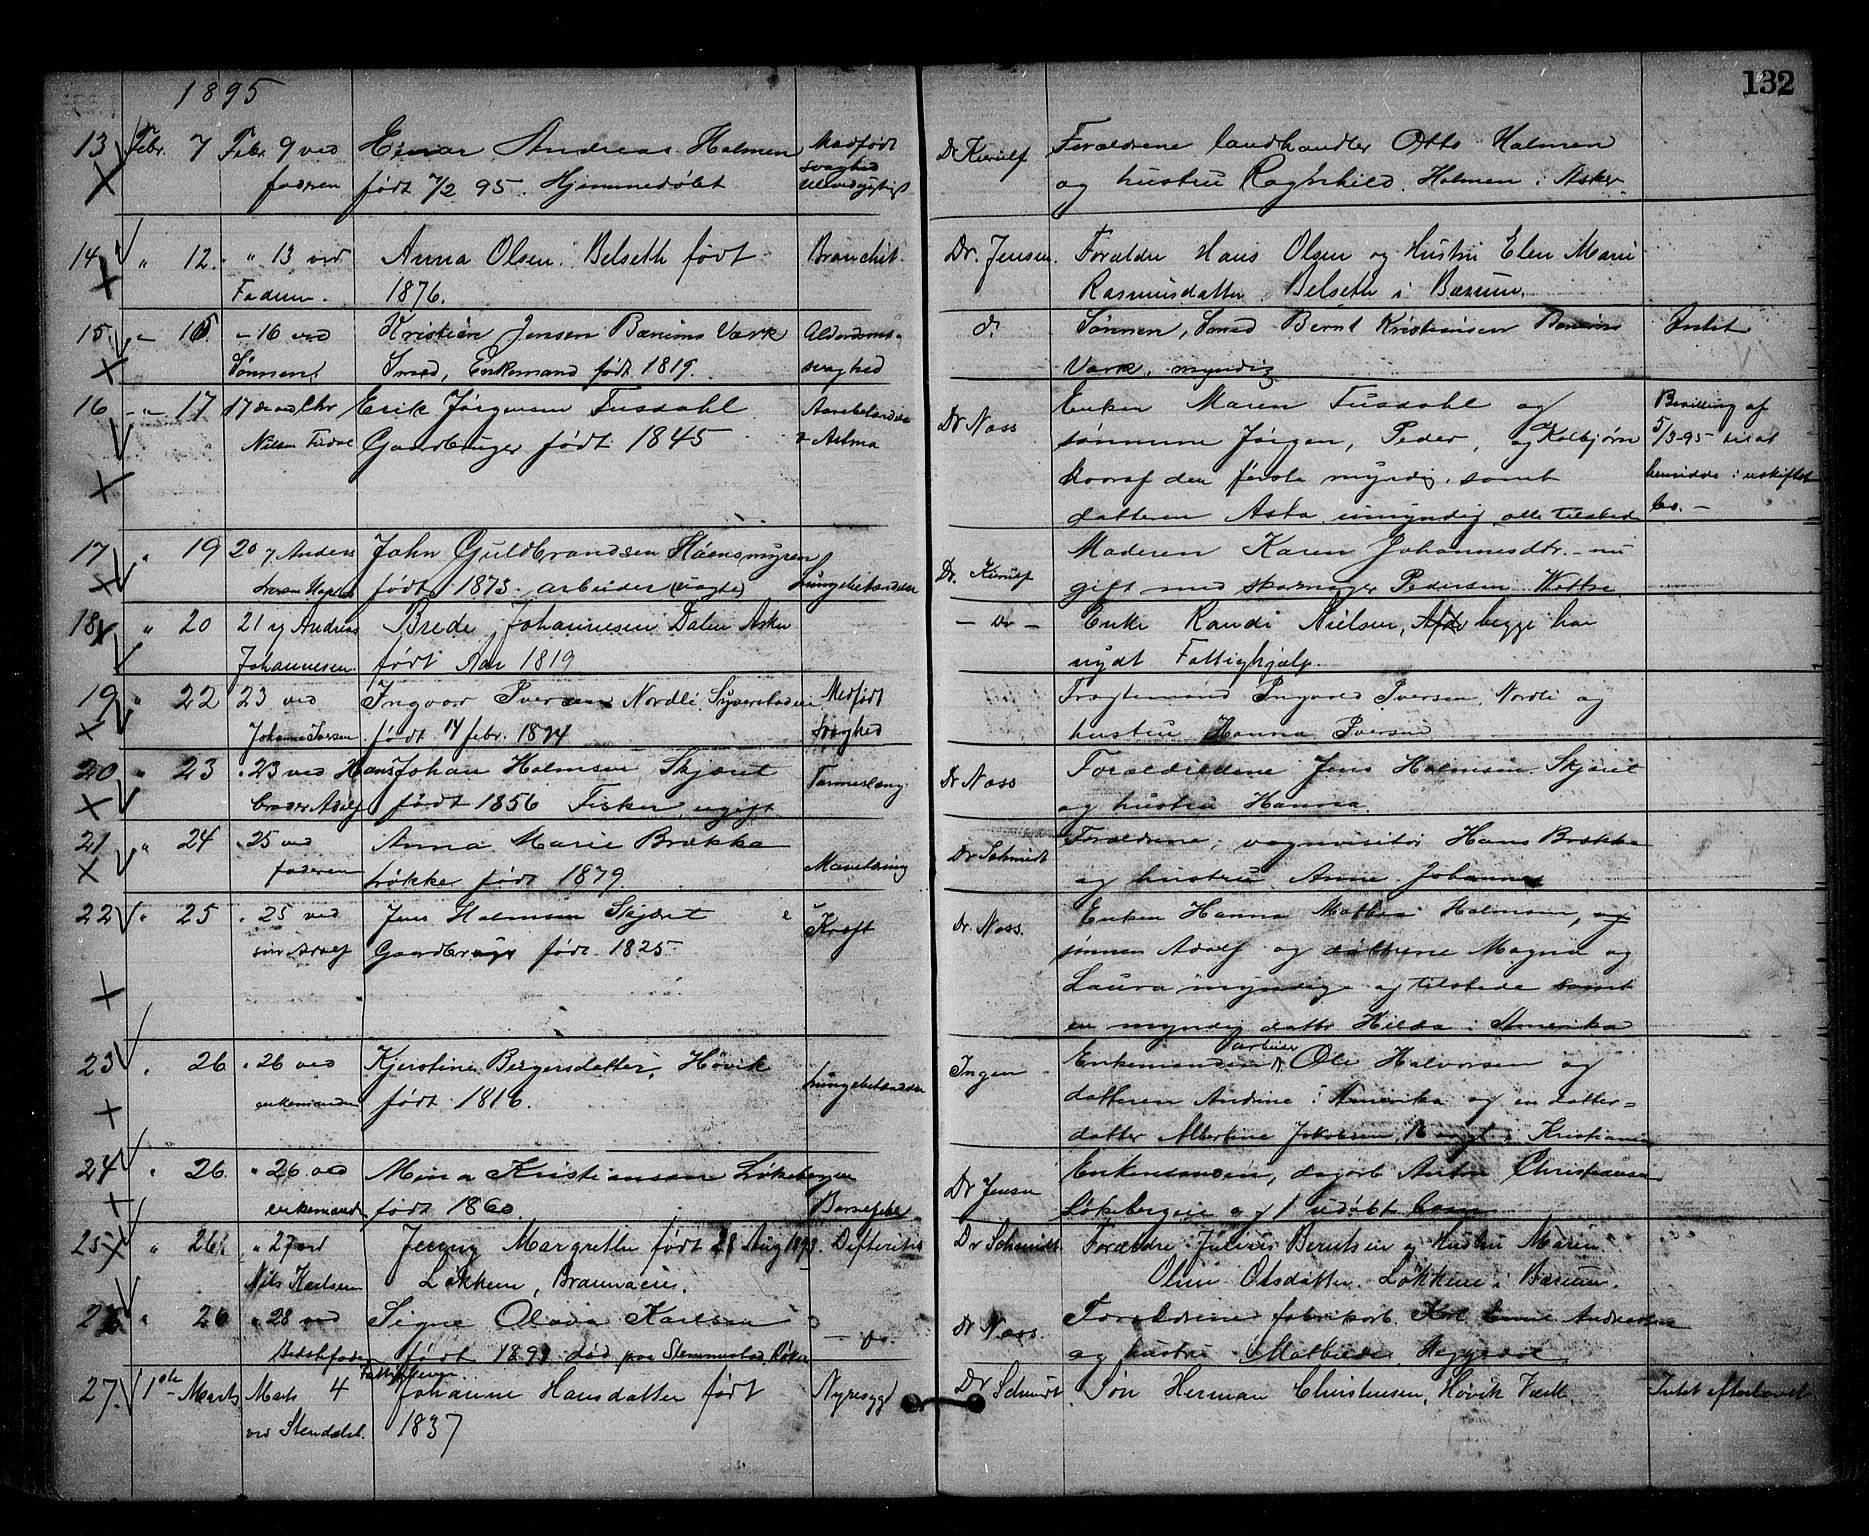 1895
132
13 Febr. 7 Febr. 9 ved Einar Andreas Holmen Medfødt Dr. Kierulf Forældrene landhandler Otto Holmen
faderen født 7/2 95. Hjemmedøbt svaghed og hustru Ragnhild Holmen i Asker
14 " 12. " 13 ved Anna Olsen. Belseth født Bronchit. Dr. Jensen. Forældre Hans Olsen og Hustru Elen Marie
Faderen. 1876. Rasmusdatter Belseth i Bærum.
15. " 15. " 16 ved Kristian Jensen Bærums Værk Alderdoms- do Sønnen, Smed Bernt Kristiansen Bærums Intet
Sønnen. Smed, Enkemand født 1819. svaghed Værk, myndig
16 " 17 17 ved Chr Erik Jørgensen Fusdahl Dr Næss Enken Maren Fusdahl og Bevilling af
Nilsen Fusdal Gaardbruger født 1845 & Astma sønnerne Jørgen, Peder, og Kolbjørn 5/3-95 til at
hvoraf den første myndig, samt hensidde i uskiftet
datteren Asta umyndig alle tilstede bo. -
17 " 19 20 v Anders John Guldbrandsen født 1873 arbeider (uægte) Lungebetændelse Dr. Kierulf Moderen Karen Johannesdtr. - nu
gift med Pedersen Wettre
18 " 20 21 v Andreas Brede Johannesen Dalen Asker - Do - Enke Randi Nielsen, begge har
Johannesen. født Aar 1819 nydt Fattighjælp.
19 " 22 23 ved Ingvar Iversen Nordli, Syverstadeie Medfødt Ingvald Iversen Nordli og
Johanne Iversen født 14 febr. 1894 svaghed hustru Hanna Iversen
20 " 23 " 23 ved Hans Johan Holmsen Skjæret Dr Næss Forældrene Jens Holmsen Skjæret
broder Adolf født 1856 Fisker, ugift og hustru Hanna
21 " 24 " 25 ved Anna Marie Brække Dr Schmidt Forældrene, vognvisitør Hans Brække
faderen frøken født 1879. og hustru Anne Johanne
22 " 25 " 25 ved Jens Holmsen Skjæret Kræft Dr. Næss. Enken Hanna Mathea Holmsen, og
søn Adolf Gaardbruger født 1825 sønnen Adolf og døttrene Magna og
Laura myndige og tilstede samt
en myndig datter Hilda i Amerika
23 " 26 " 26 ved Kjerstine Bergersdatter, Høvik Lungebetændelse Ingen Enkemanden arbeider Ole Halvorsen og
enkemanden født 1816. datteren Andrine i Amerika og en datter-
datter Albertine Jakobsen, i Kristiania
24 " 26. " 26 ved Mina Kristiansen Løkebergeie Barselfeber Dr Jensen Enkemanden, dagarb. Anton Christiansen
enkemand født 1860. Løkebergeie og 1 udøbt barn
25 " 26 " 27 ved Jenny Margrethe født 28 Aug 1893. Difteritis Dr Schmidt Forældre Julius Berntsen og Hustru Maren
Nils Karlsen Løkken, Oline Olsdatter. Løkken i Bærum.
26 " 26 " 28 ved Signe Olava Karlsen - Do. Dr Næss. Forældrene fabrikarb. Karl Emil Andreasen
Bedstefader født død paa Slemmestad, Røken og hustru Mathilde
27. 1ste Marts Marts 4 Johanne Hansdatter født Nyresyge Dr Schmidt. Søn Herman Christensen, Høvik Værk Intet efterladt
ved 1837